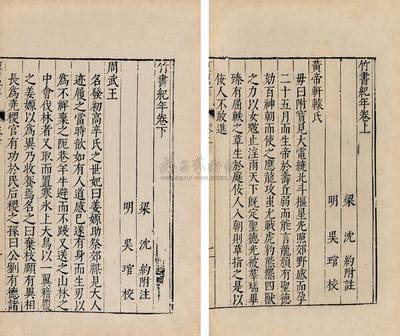 竹書紀年卷上
梁 沈 約附注
明 吳 琯校
黃帝軒轅氏
母曰附寶見大電繞北斗樞星光照郊野感而孕
二十五月而生帝於壽丘弱而能言龍顏有聖德
劾百神朝而使之應龍攻蚩尤戰虎豹熊羆四獸
之力以女魃止淫雨天下既定聖德光被羣瑞畢
臻有屈軼之草生於庭佞人入朝則草指之是以
佞人不敢進
竹書紀年卷下
梁 沈 約附注
明 吳 琯校
周武王
名發初高辛氏之世妃曰姜嫄助祭郊禖見大人
迹履之當時歆如有人道感己遂有身而生男以
為不祥棄之阨巷羊牛避而不踐又送之山林之
中會伐林者又取而置寒冰上大鳥以一翼藉覆
之姜嫄以為異乃收養焉名之曰棄枝頤有異相
長為堯稷官有功於民后稷之孫曰公劉有德諸